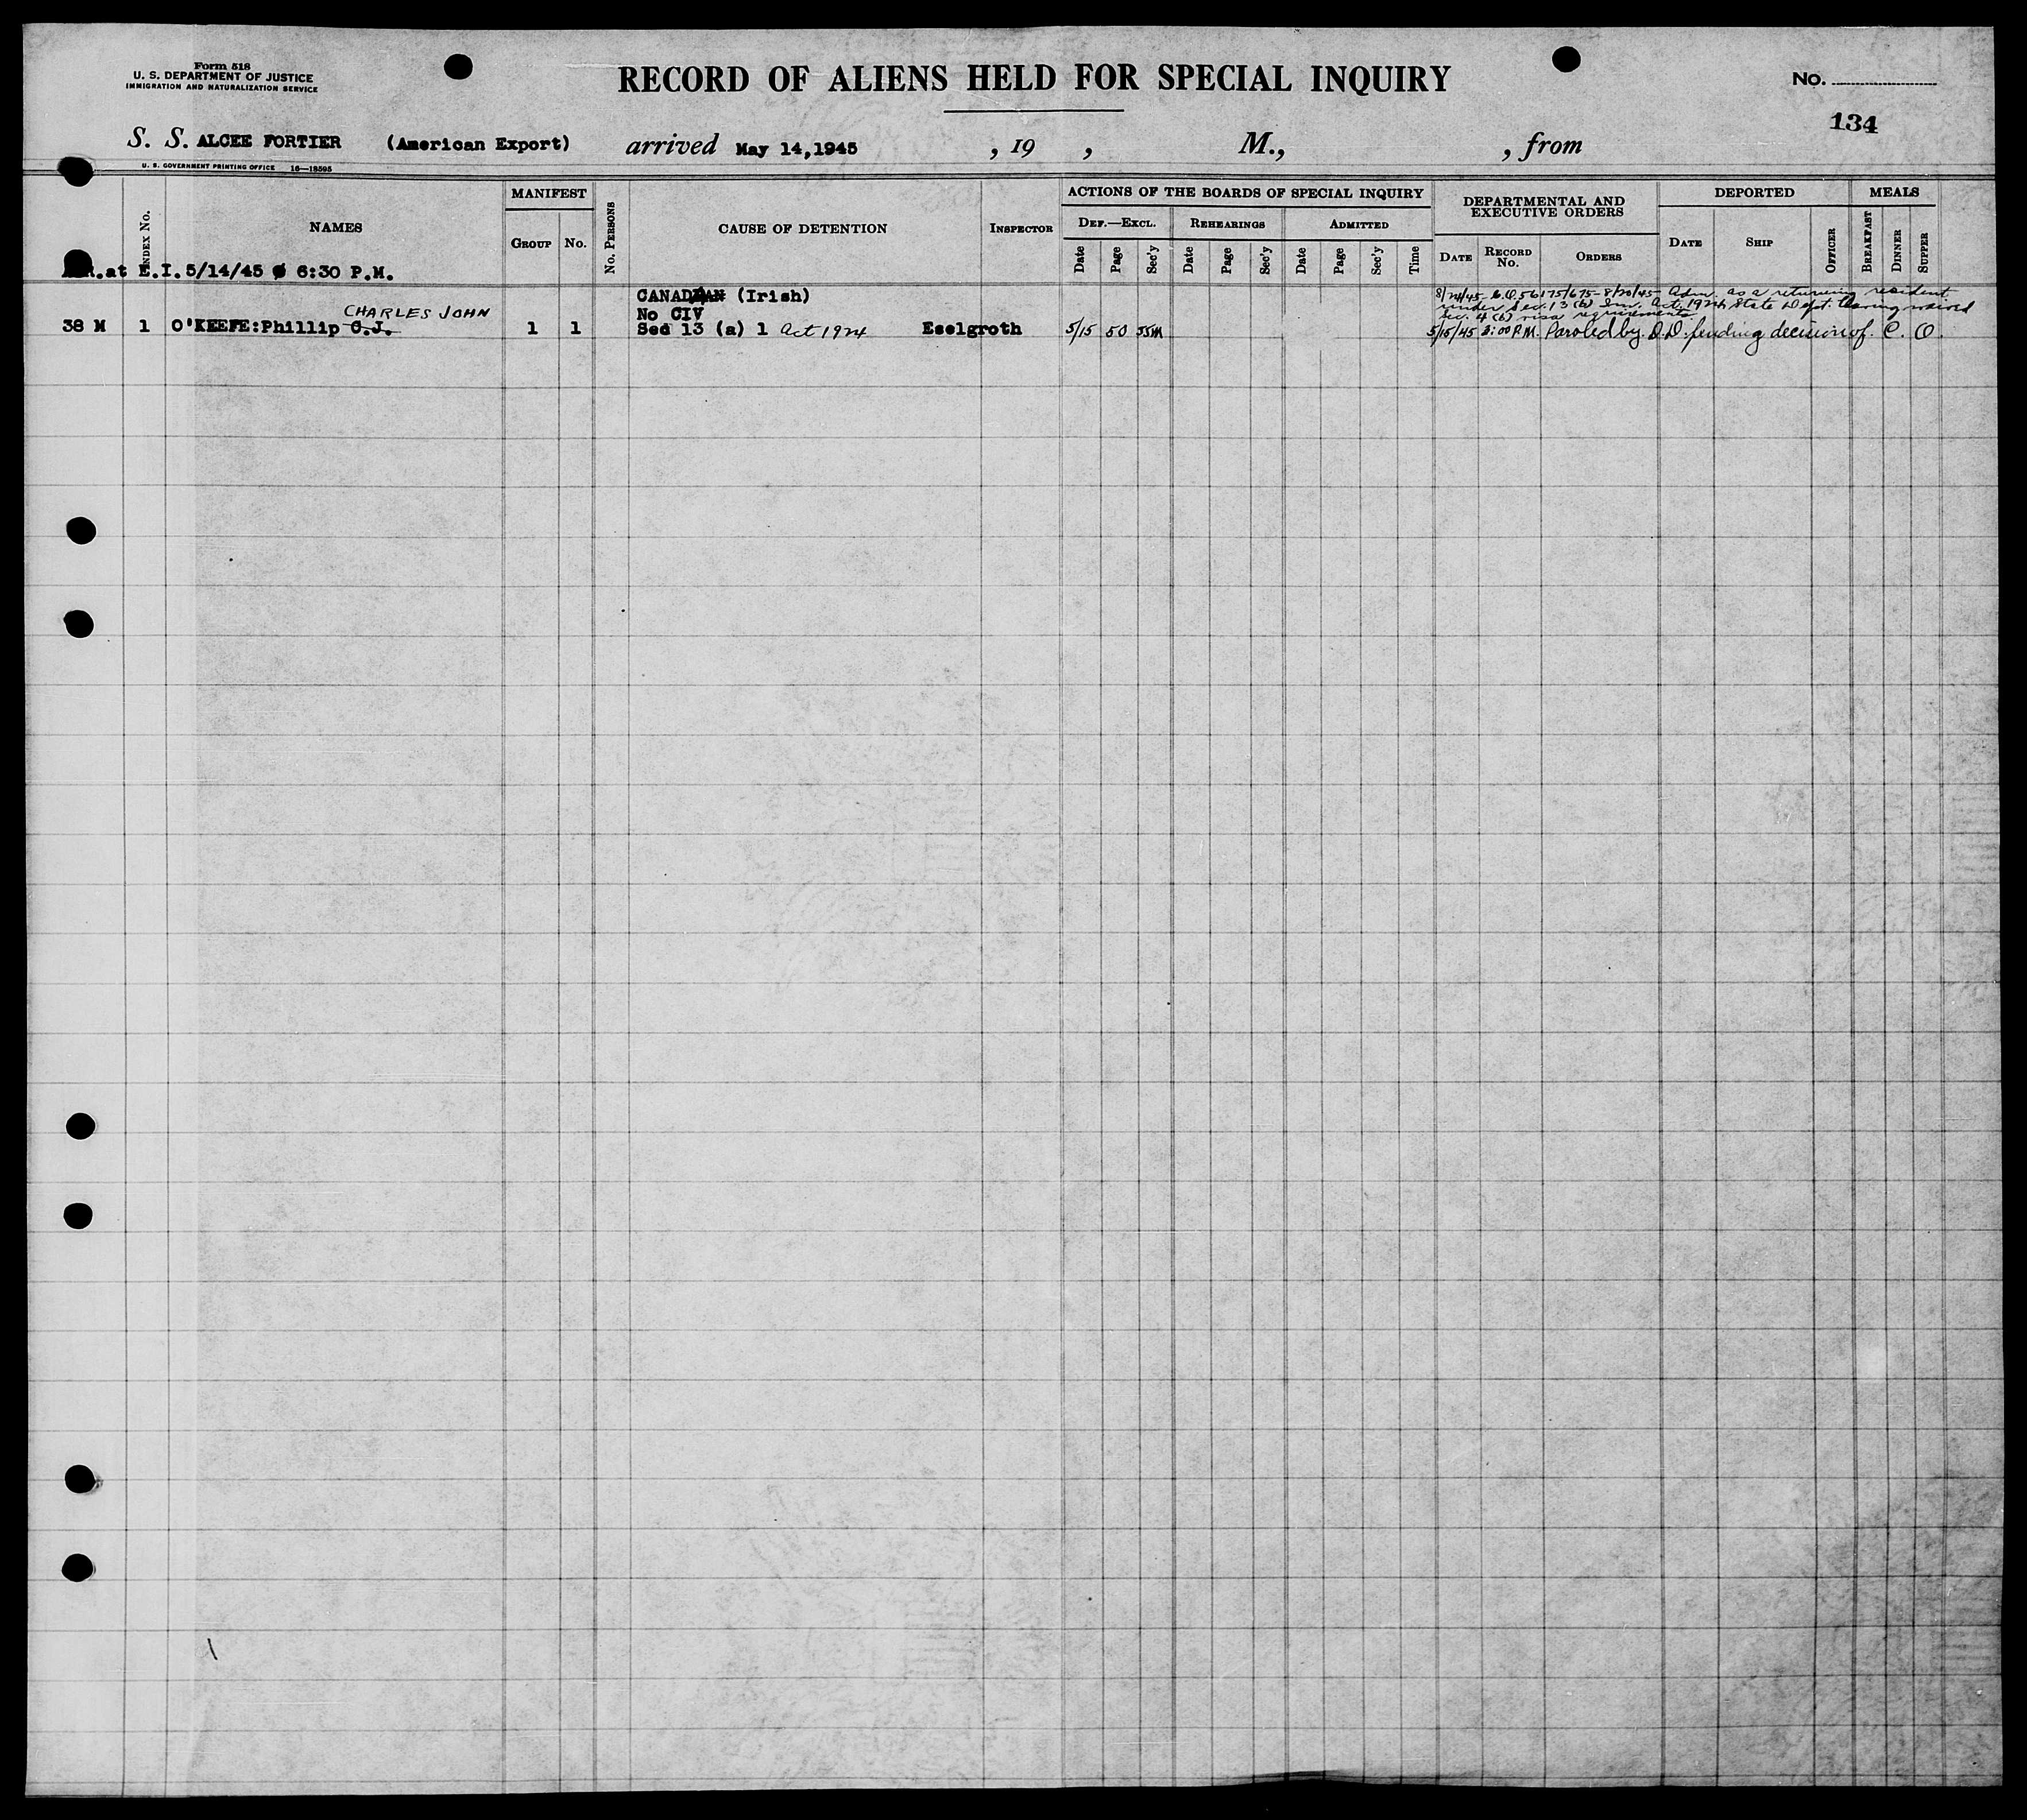 Form 518
U. S. DEPARTMENT OF JUSTICE
IMMIGRATION AND NATURALIZATION SERVICE
RECORD OF ALIENS HELD FOR SPECIAL INQUIRY
No.
134
S. S. ALCEE FORTIER (American Export) arrived May 14,1945 , 19 , M., , from
U. S. GOVERNMENT PRINTING OFFICE 16—18595
INDEX No.
NAMES
MANIFEST
GROUP No.
No. PERSONS
CAUSE OF DETENTION
INSPECTOR
ACTIONS OF THE BOARDS OF SPECIAL INQUIRY
DEF.—EXCL. REHEARINGS ADMITTED
Date Page Sec'y Date Page Sec'y Date Page Sec'y Time
DEPARTMENTAL AND
EXECUTIVE ORDERS
DATE RECORD No. ORDERS
DEPORTED
DATE SHIP OFFICER
MEALS
BREAKFAST DINNER SUPPER
at E.I. 5/14/45 @ 6:30 P.M.
CANADIAN (Irish)
No CIV
CHARLES JOHN
38 M 1 O'KEEFE:Phillip C.J. 1 1 Sed 13 (a) 1 Act 1924 Eselgroth 5/15 50 SSM
8/24/45 C.O. 56175/675- 8/20/45- Adm. as a returning resident
under Sec. 13 (b) Im. Act, 1924, State Dept. having waived
Sec. 4 (b) visa requirements
5/15/45 3:00 P.M. Paroled by D.D. pending decision of C. O.